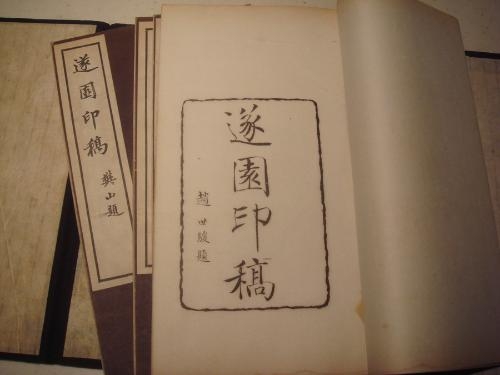 遂園印稿
趙世駿題
遂園印稿
樊山題